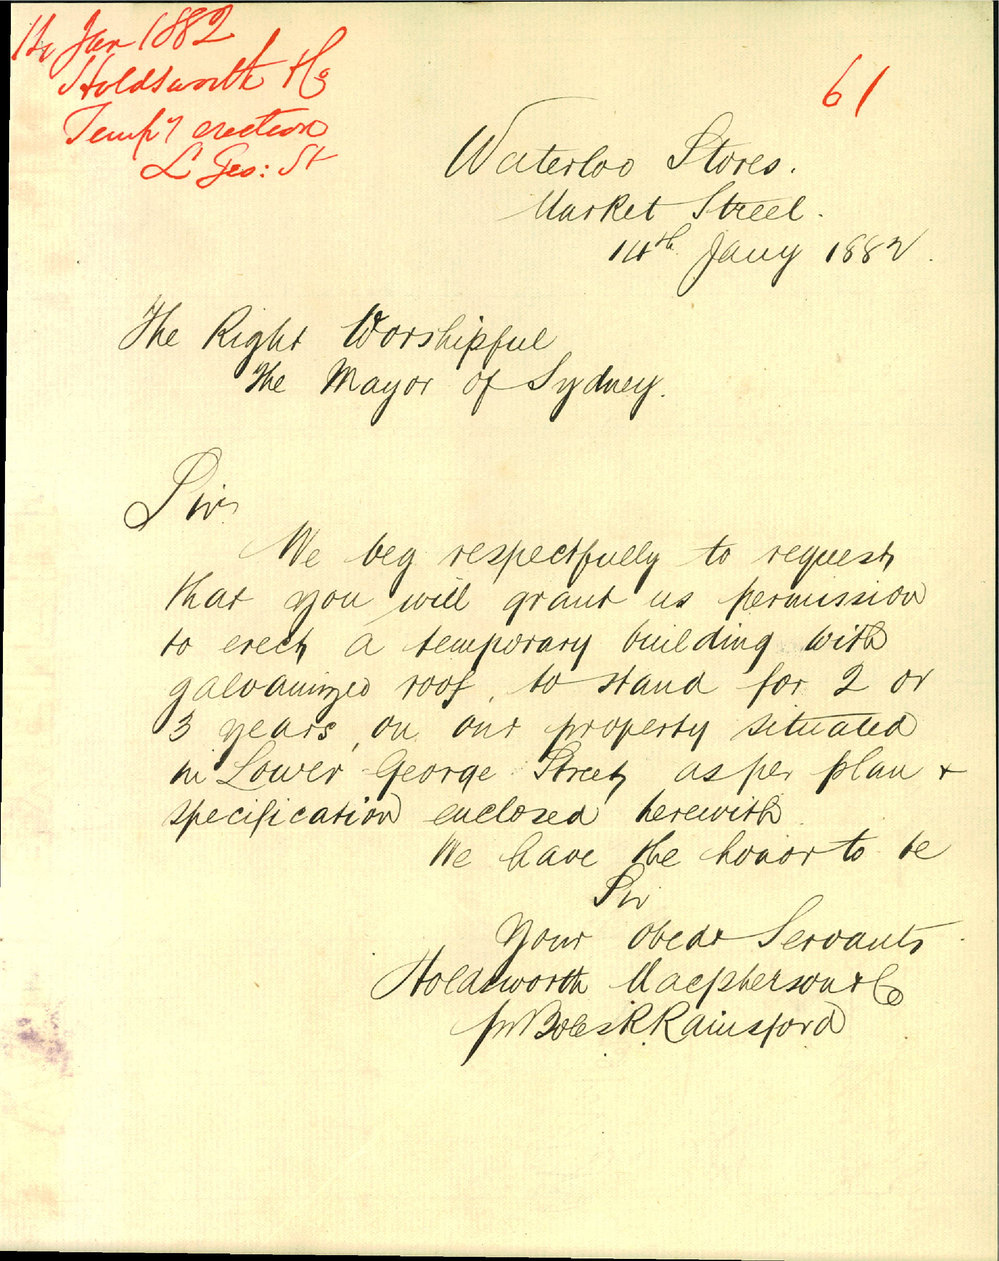 14 Jan 1882
Holdsworth H
Temp'y erection
L Geo: St
61
Waterloo Stores.
Market Street.
14th Jany 1882.
The Right Worshipful
The Mayor of Sydney.
Sir
We beg respectfully to request
that you will grant us permission
to erect a temporary building with
galvanized roof, to stand for 2 or
3 years, on our property situated
in Lower George Street, as per plan +
specification enclosed herewith.
We have the honor to be
Sir
Your Obedt Servants
Holdsworth Macpherson & Co
pr R Rainsford